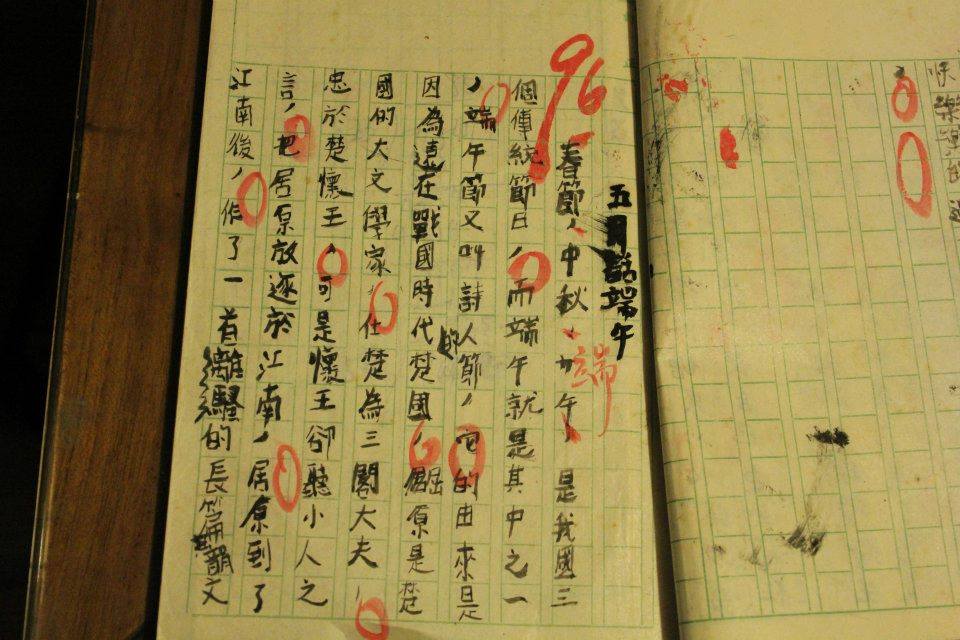 快樂的
96
五月話端午
春節、中秋、午,是我國三
端
個傳統節日,而端午就是其中之一
,端午節又叫詩人節,它的由來是
因為遠在戰國時代的楚國,倔原是楚
國的大文學家,仕楚為三閣大夫,
忠於楚懷王,可是懷王卻聽小人之
言,把居原放逐於江南,居原到了
江南後,作了一首離騷的長篇韻文